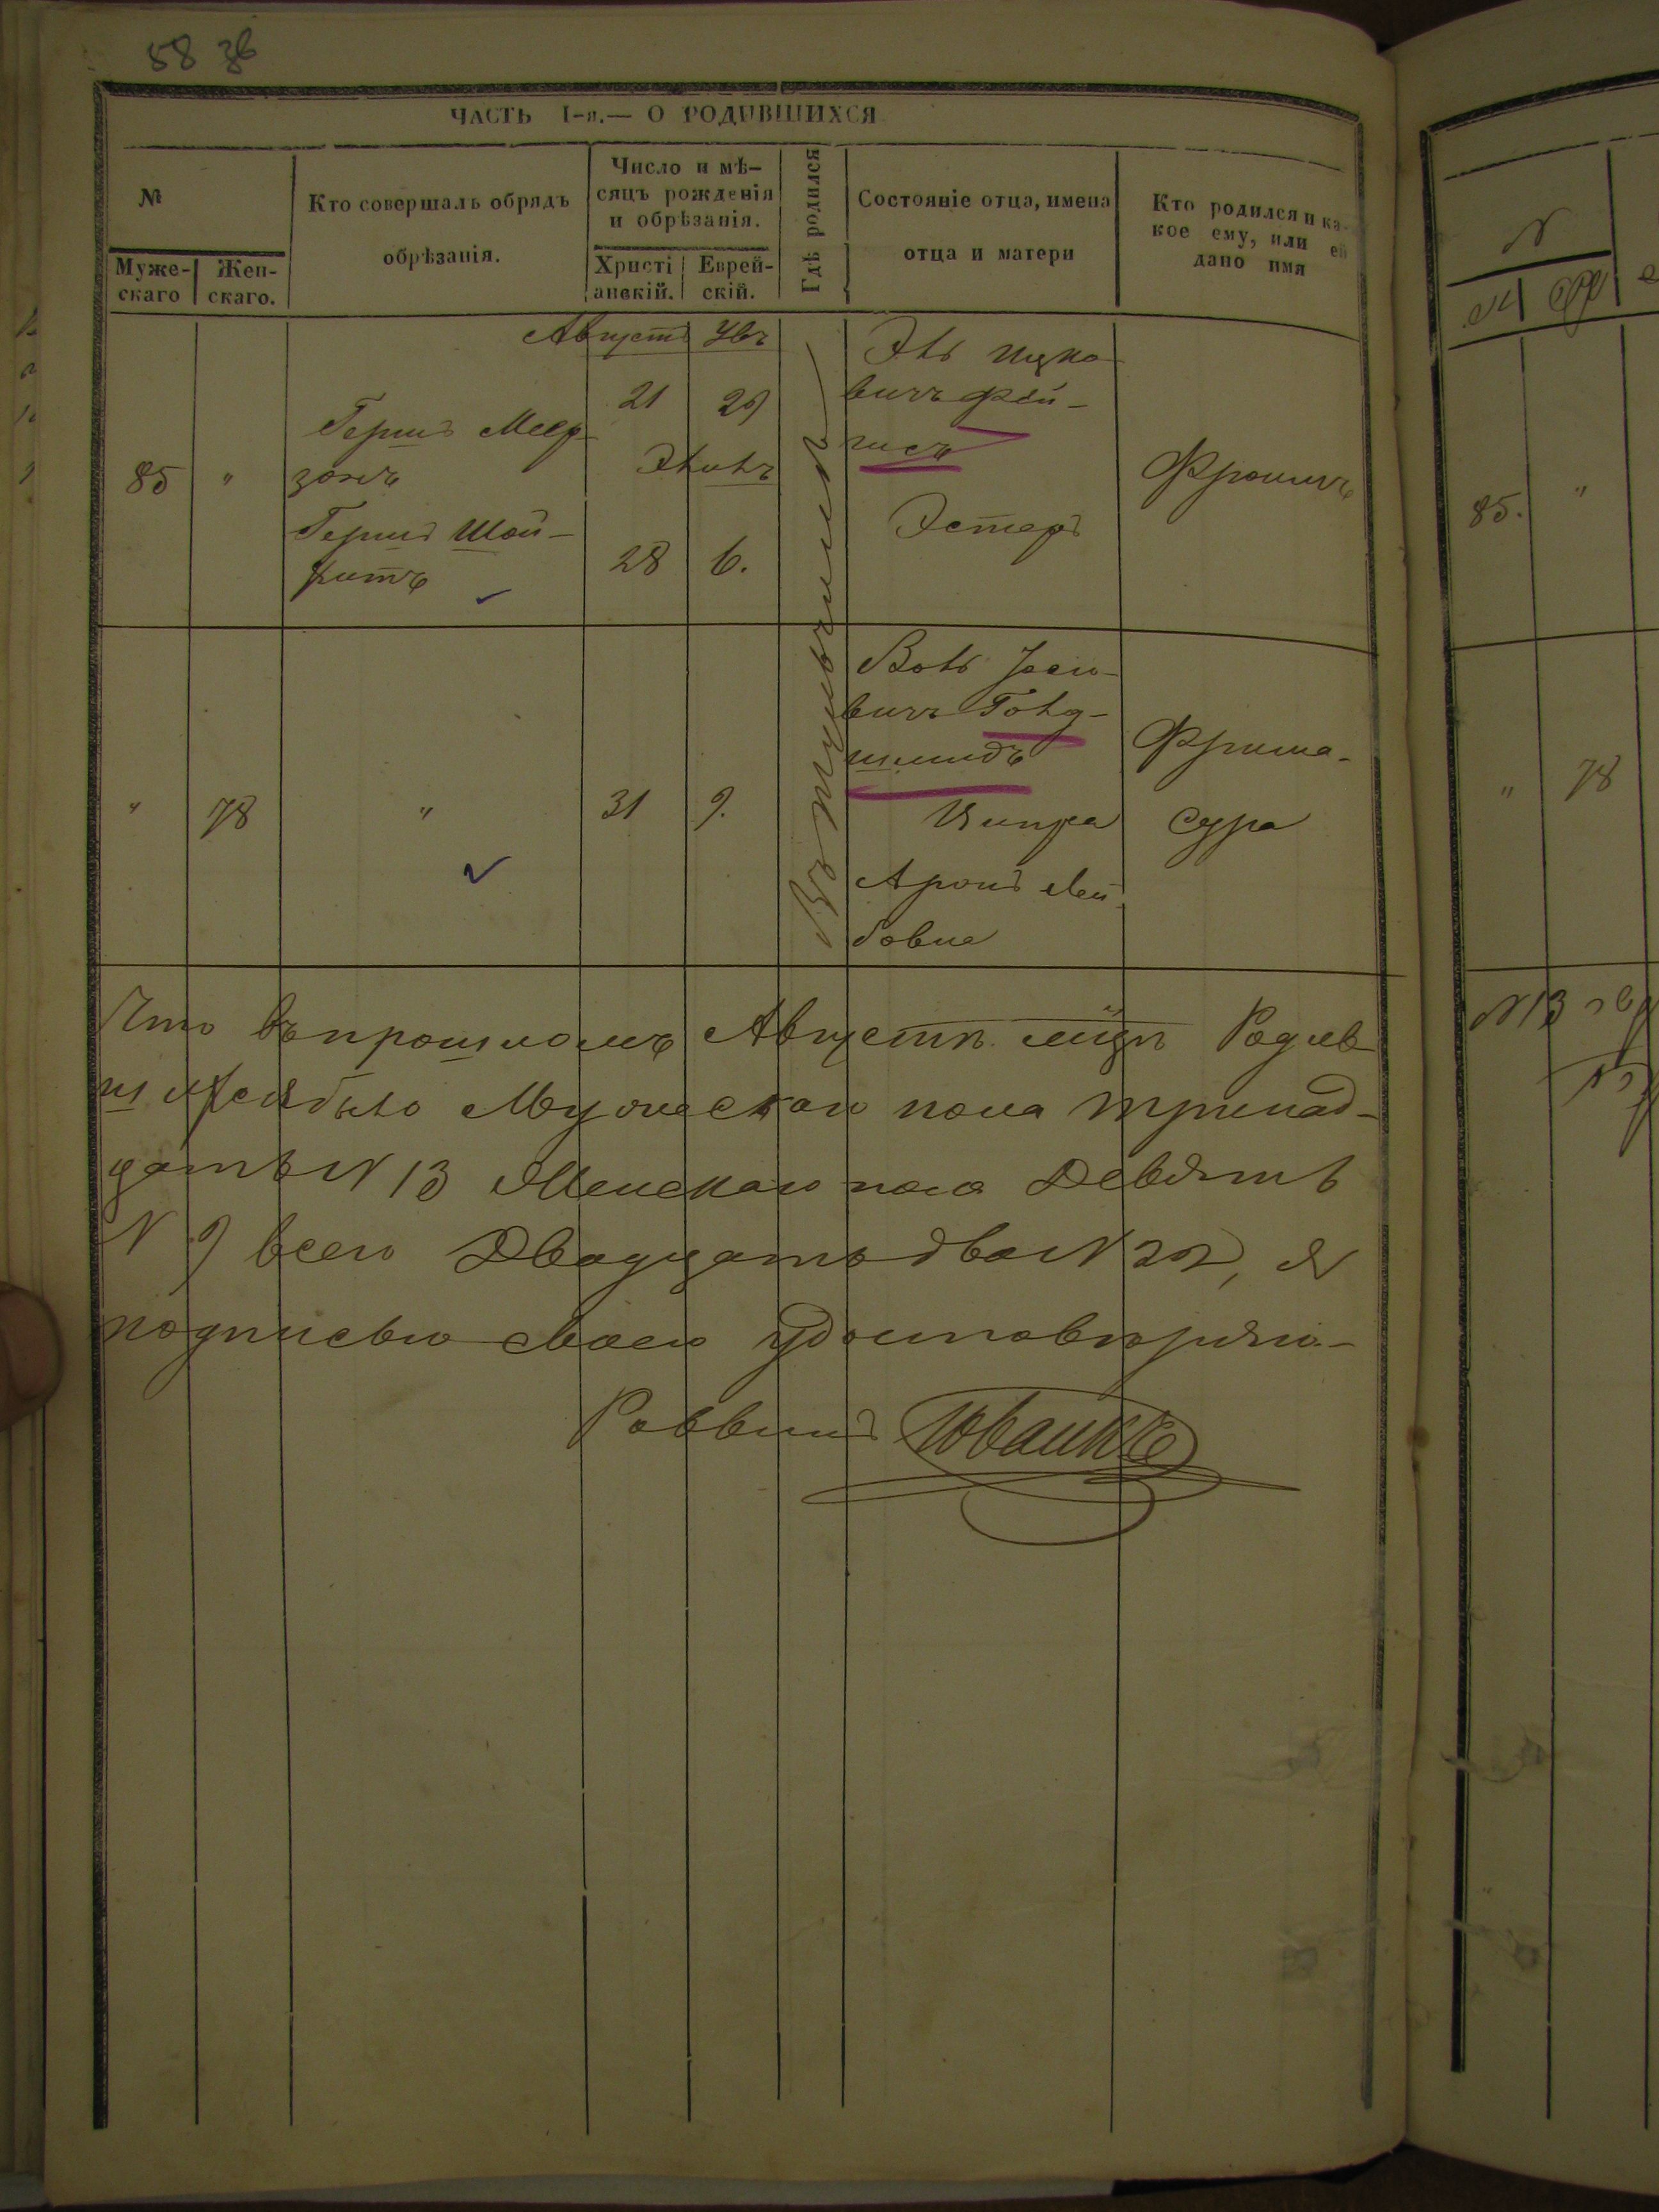 58 зв
ЧАСТЬ I-я.— О РОДИВШИХСЯ
№
Муже-
скаго
Жен-
скаго.
Кто совершалъ обрядъ
обрѣзанія.
Число и мѣ-
сяцъ рожденія
и обрѣзанія.
Христі
анскій.
Еврей-
скій.
Гдѣ родился
Состояніе отца, имена
отца и матери
Кто родился и ка-
кое ему, или ей
дано имя
Августъ
85
"
Гершъ Меер-
зонъ
Гершъ Шай-
21
29
Элилъ
28
6.
Эль Ицко-
вичъ Фей-
гисъ
Эстеръ
Фроимъ
"
78
"
31
9.
Въ
Воль Јосіо-
вичъ Голд-
шмидъ
Ципра
Аронъ Лей-
бовна
Фрима-
Сура
Что въ прошломъ Августѣ мцѣ Родив-
шихся было Мужескаго пола тринад-
цать N 13 Женскаго пола Девять
N 9 всего Двадцать два N 22, я
подписью своею удостовѣряю-
Раввинъ
N
М
85.
"
"
78
N 13